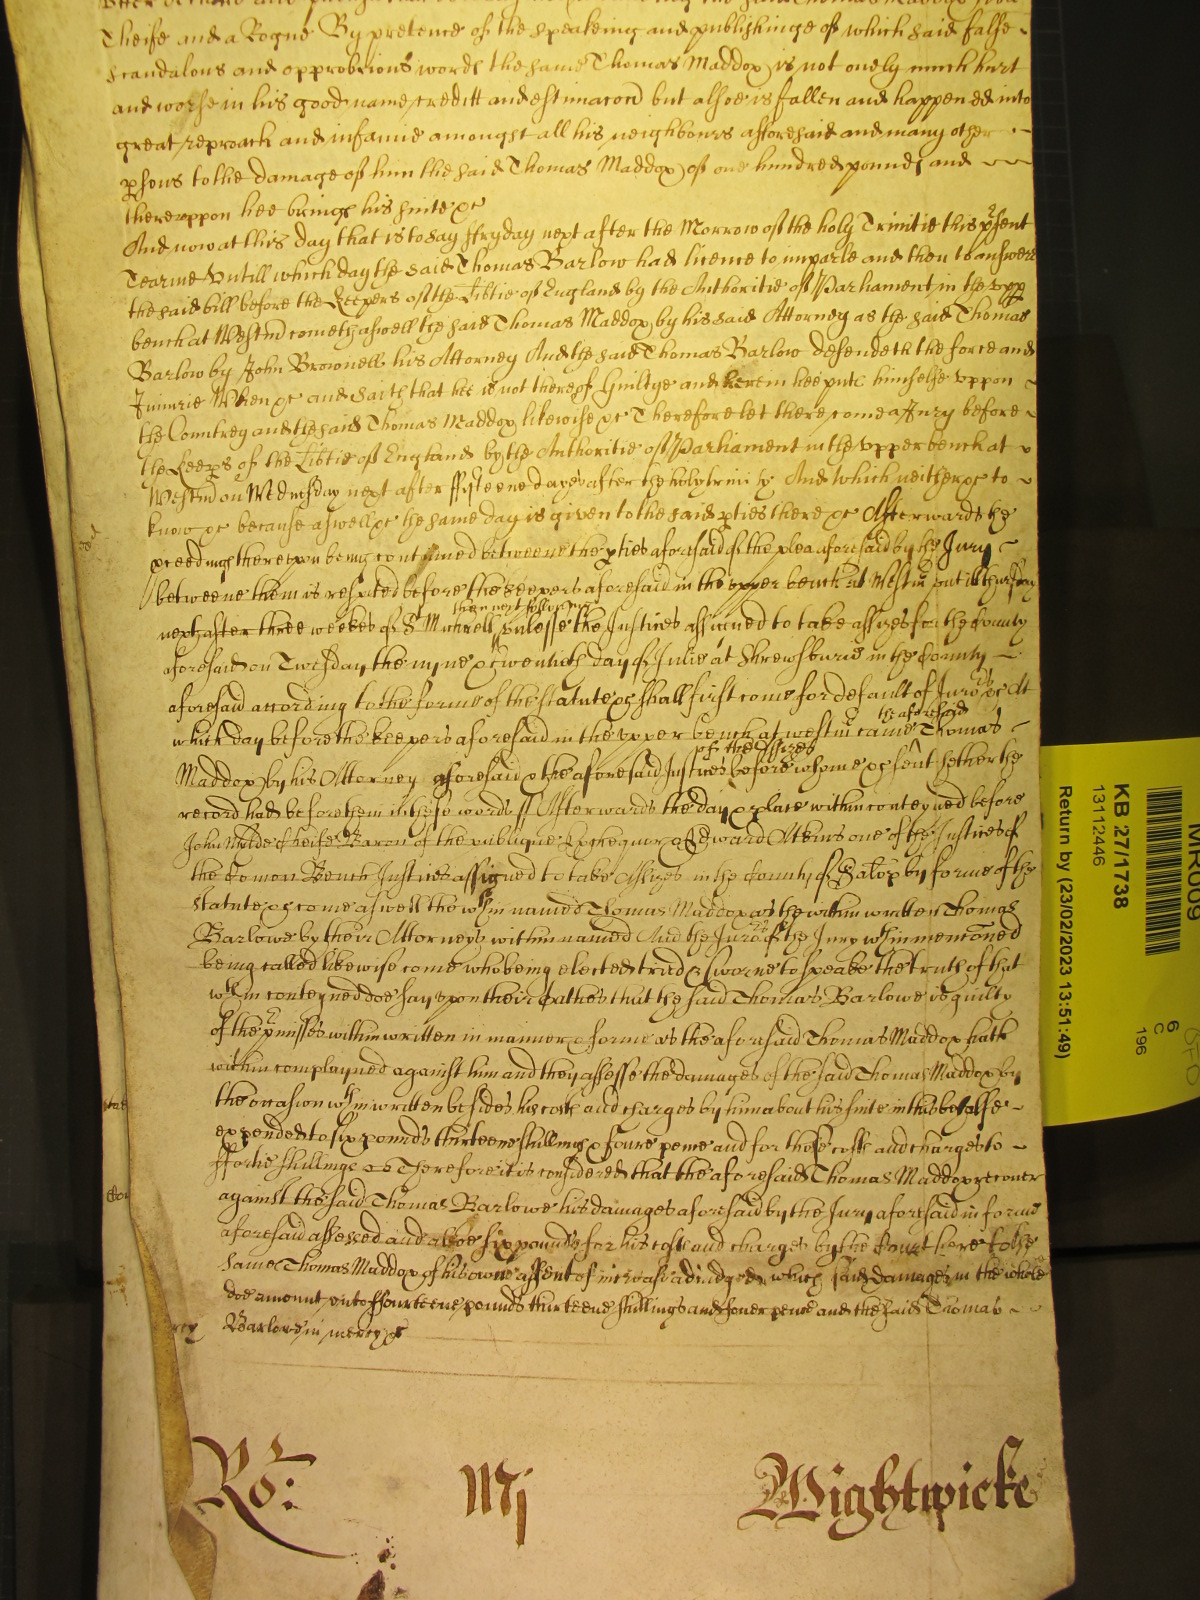 Theife and a Rogue By pretence of the speakeing and publishinge of which said false
scandalous and opprobrious words the same Thomas Maddox is not onely much hurt
and worse in his good name creditt and estimacon but alsoe is fallen and happened into
great reproach and infamie amongst all his neighbours afforesaid and many other
psons to the damage of him the said Thomas Maddox of one hundred pounds and
thereuppon hee brings his suite &c
And now at this day that is to say ffryday next after the Morrow of the holy Trinitie this psent
Tearme Untill which day the said Thomas Barlow had licence to imparle and then to answere
the said bill before the Keepers of the Libtie of England by the Authoritie of Parliament in the upp
bench at Westm cometh aswell the said Thomas Maddox by his said Attorney as the said Thomas
Barlow by John Brownell his Attorney And the said Thomas Barlow defendeth the force and
Iniurie When &c and saith that hee is not thereof Guiltye and herein hee putts himselfe uppon
the Countrey and the said Thomas Maddox likewise &c Therefore let there come a Jury before
the Keeps of the Libtie of England by the Authoritie of Parliament in the upper bench at
Westm on Wednesday next after ffifteene dayes after the holy trinity And which neither &c to
know &c because aswell &c the same day is given to the said pties there &c Afterwards the
pceedings thereupon being continued betweene the pties aforesaid of the plea aforesaid by the Jury
betweene them is respited before the Keepers aforesaid in the upper bench at Westm untill thursday
then next following
next after three weekes of St Michaell unlesse the Justices assigned to take assizes for the County
aforesaid on Tuesday the nyne & twentieth day of Julie at Shrewsburie in the County
aforesaid according to the forme of the statute &c shall first come for default of Juro &c At
the aforesaid
which day before the Keepers aforesaid in the upper bench at westm came Thomas
of the Assizes
Maddox by his Attorney aforesaid & the aforesaid Justices before whome &c sent hether the
record had before them in these words ss Afterwards the day & place within conteyned before
John Wilde cheife Baron of the publique Exchequer & Edward Atkins one of the Justices of
the Comon Bench Justices assigned to take Assizes in the County of Salop by forme of the
statute &c come aswell the wthin named Thomas Maddox as the within written Thomas
Barlowe by their Attorneys within named And the Juro of the Jury wthin menconed
being called likewise come who being elected tried & sworne to speake the truth of that
wthin conteyned doe say upon their Oathes that the said Thomas Barlowe is guilty
of the pmisses within written in manner & forme as the aforesaid Thomas Maddox hath
within complayned against him and they assesse the damages of the said Thomas Maddox by
the occasion wthin written besides his costs and charges by him about his suite in this behalfe
expended to six pounds thirteene shillings & foure pence and for those costs and charges to
ffortie shillings Therefore it is considered that the aforesaid Thomas Maddox recover
against the said Thomas Barlowe his damages aforesaid by the Jury aforesaid in forme
aforesaid assessed and alsoe six pounds for his costs and charges by the Court here to the
same Thomas Maddox of his owne assent of increase adiudged which said damages in the whole
doe amount unto ffourteene pounds thirteene shillings and fower pence and the said Thomas
Barlowe in mercy &c
Ro:
Wightwicke
MR009
KB 27/1738
13112446
Return by (23/02/2023 13:51:49)
6
C
196